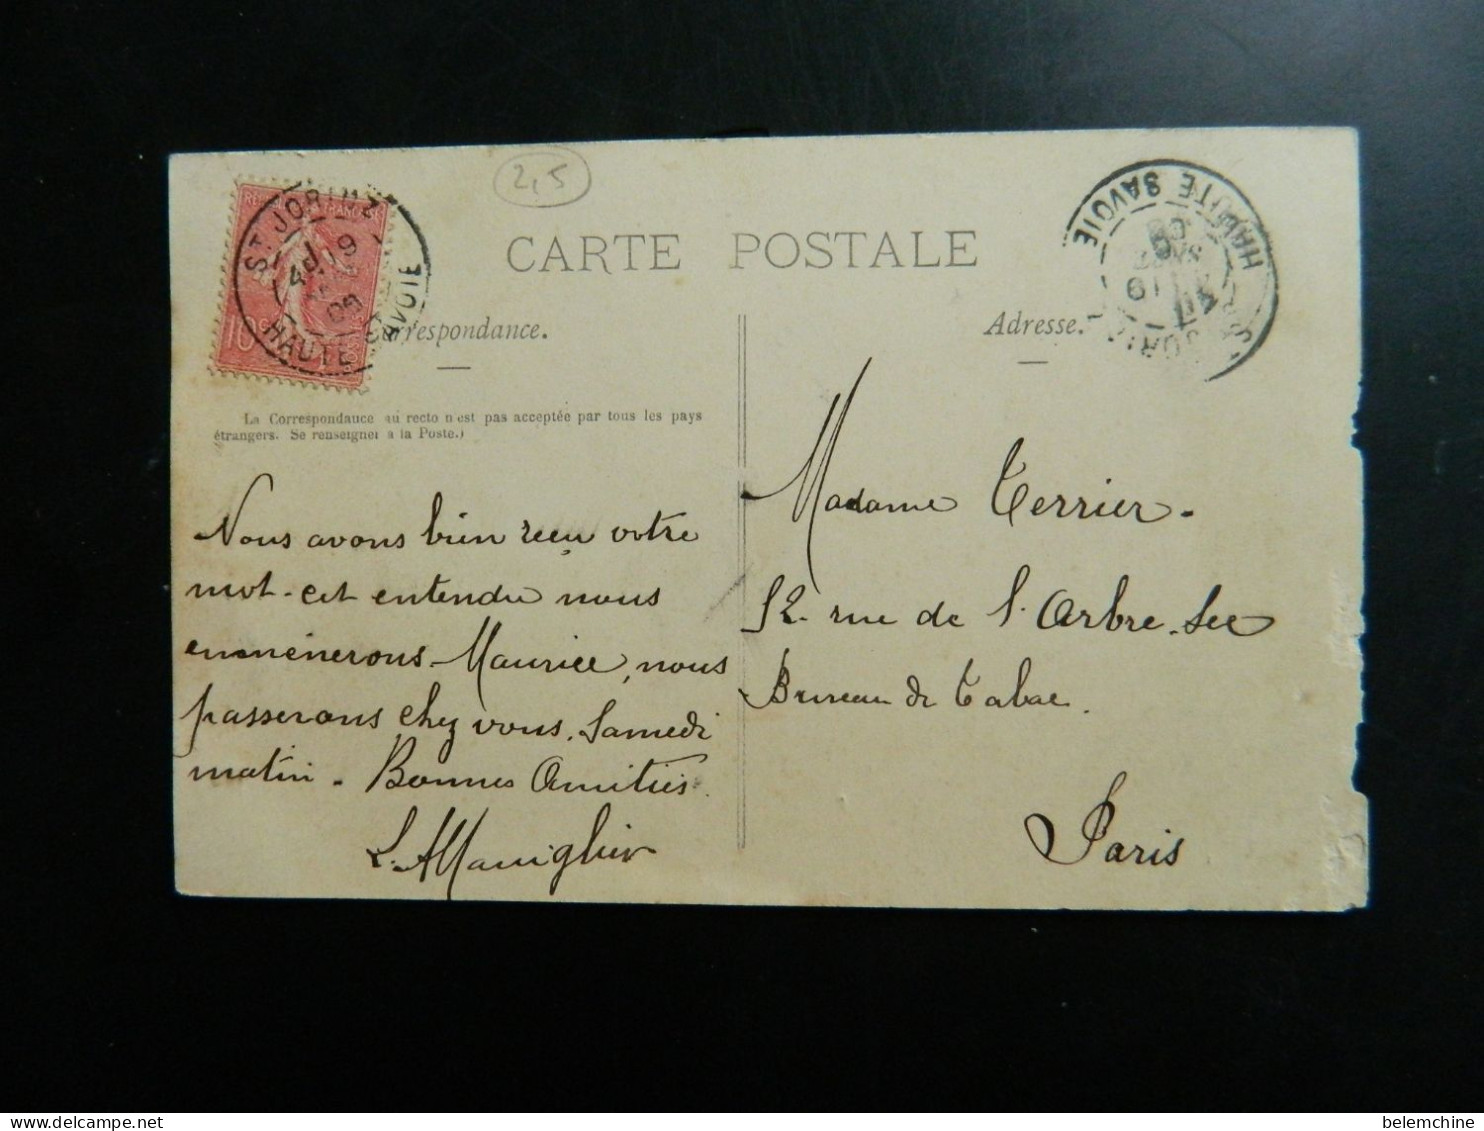 2,5
ST. JORIOZ
HAUTE SAVOIE
HAUTE SAVOIE
10c
CARTE POSTALE
Correspondance.
Adresse.
La Correspondance au recto n'est pas acceptée par tous les pays
étrangers. Se renseigner à la Poste.)
Nous avons bien reçu votre
mot. cet entendu nous
emmènerons Maurice, nous
passerons chez vous. Samedi
matin. Bonnes Amitiés.
Madame Terrier.
52. rue de l'Arbre. Sec
Bureau de Tabac.
Paris
belemchine